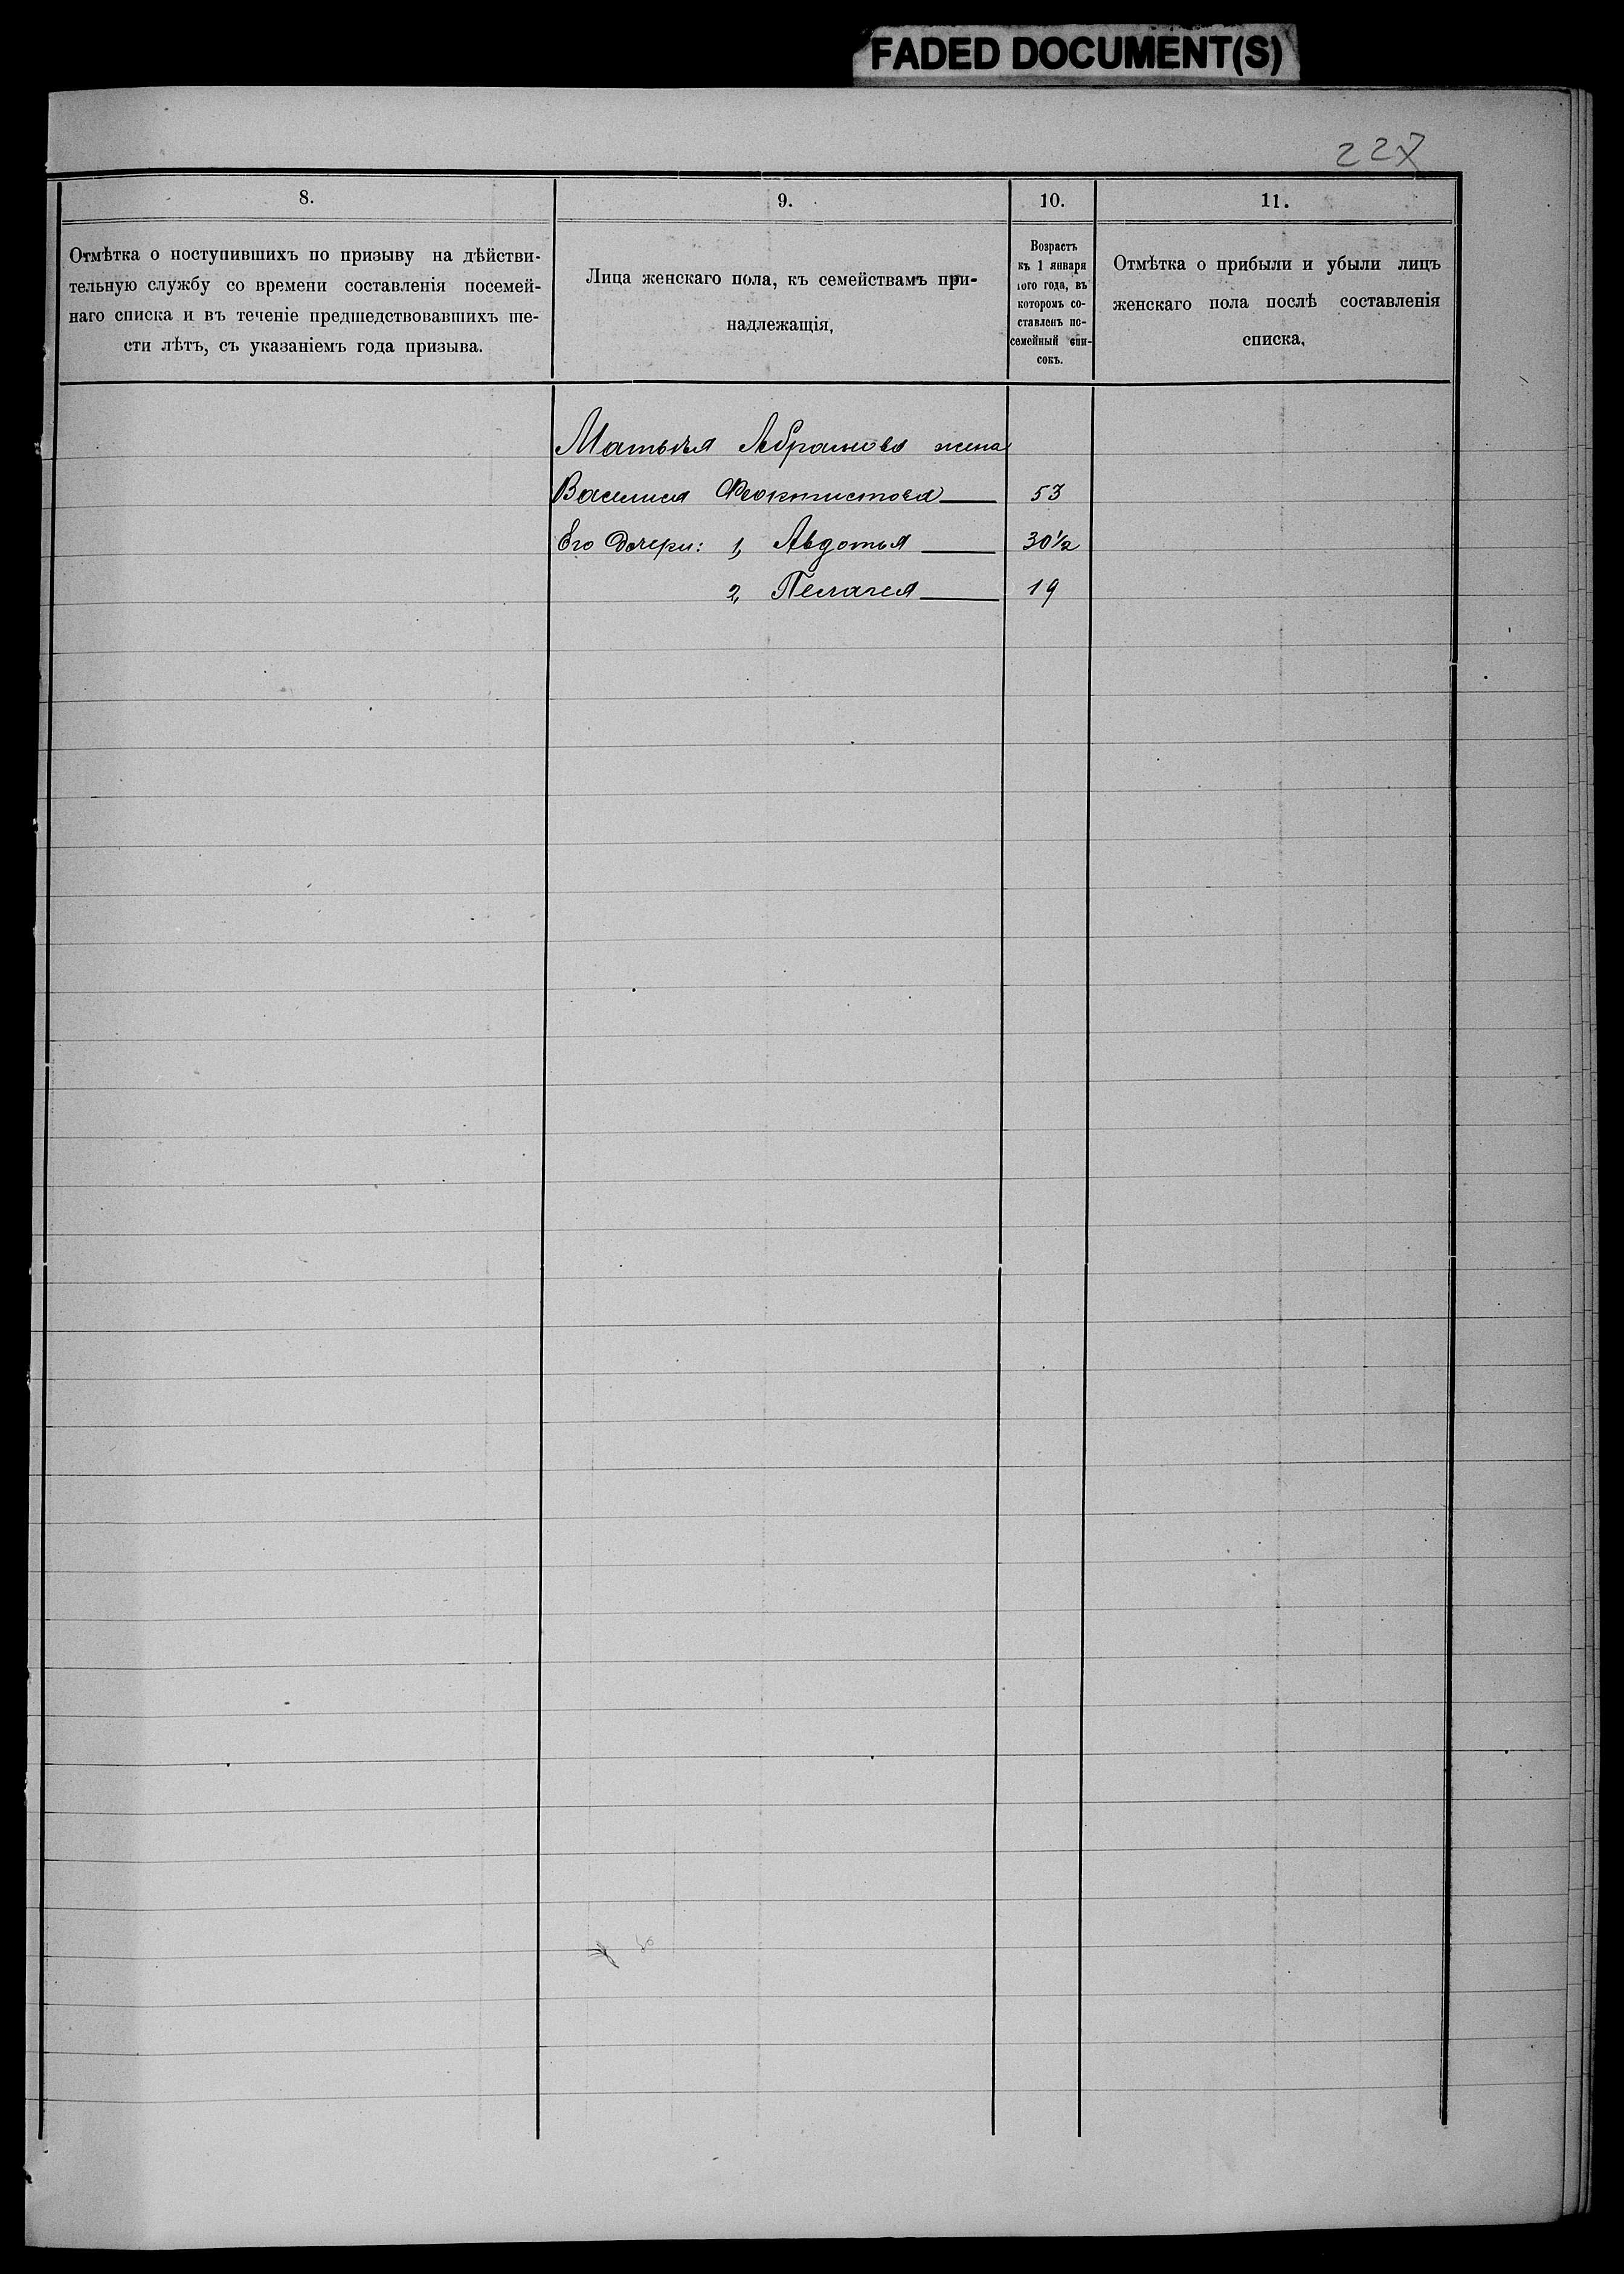 FADED DOCUMENT(S)
227
8.
9.
10.
11.
Отмѣтка о поступившихъ по призыву на дѣйстви-
тельную службу со времени составленія посемей-
наго списка и въ теченіе предшедствовавшихъ ше-
сти лѣтъ, съ указаніемъ года призыва.
Лица женскаго пола, къ семействамъ при-
надлежащія,
Возрастъ
къ 1 января
того года, въ
которомъ со-
ставленъ по-
семейный спи-
сокъ.
Отмѣтка о прибыли и убыли лицъ
женскаго пола послѣ составленія
списка,
Матвѣя Абрамова жена
Василиса Феоктистова 53
Его дочери: 1, Авдотья 30½
2, Пелагея 19